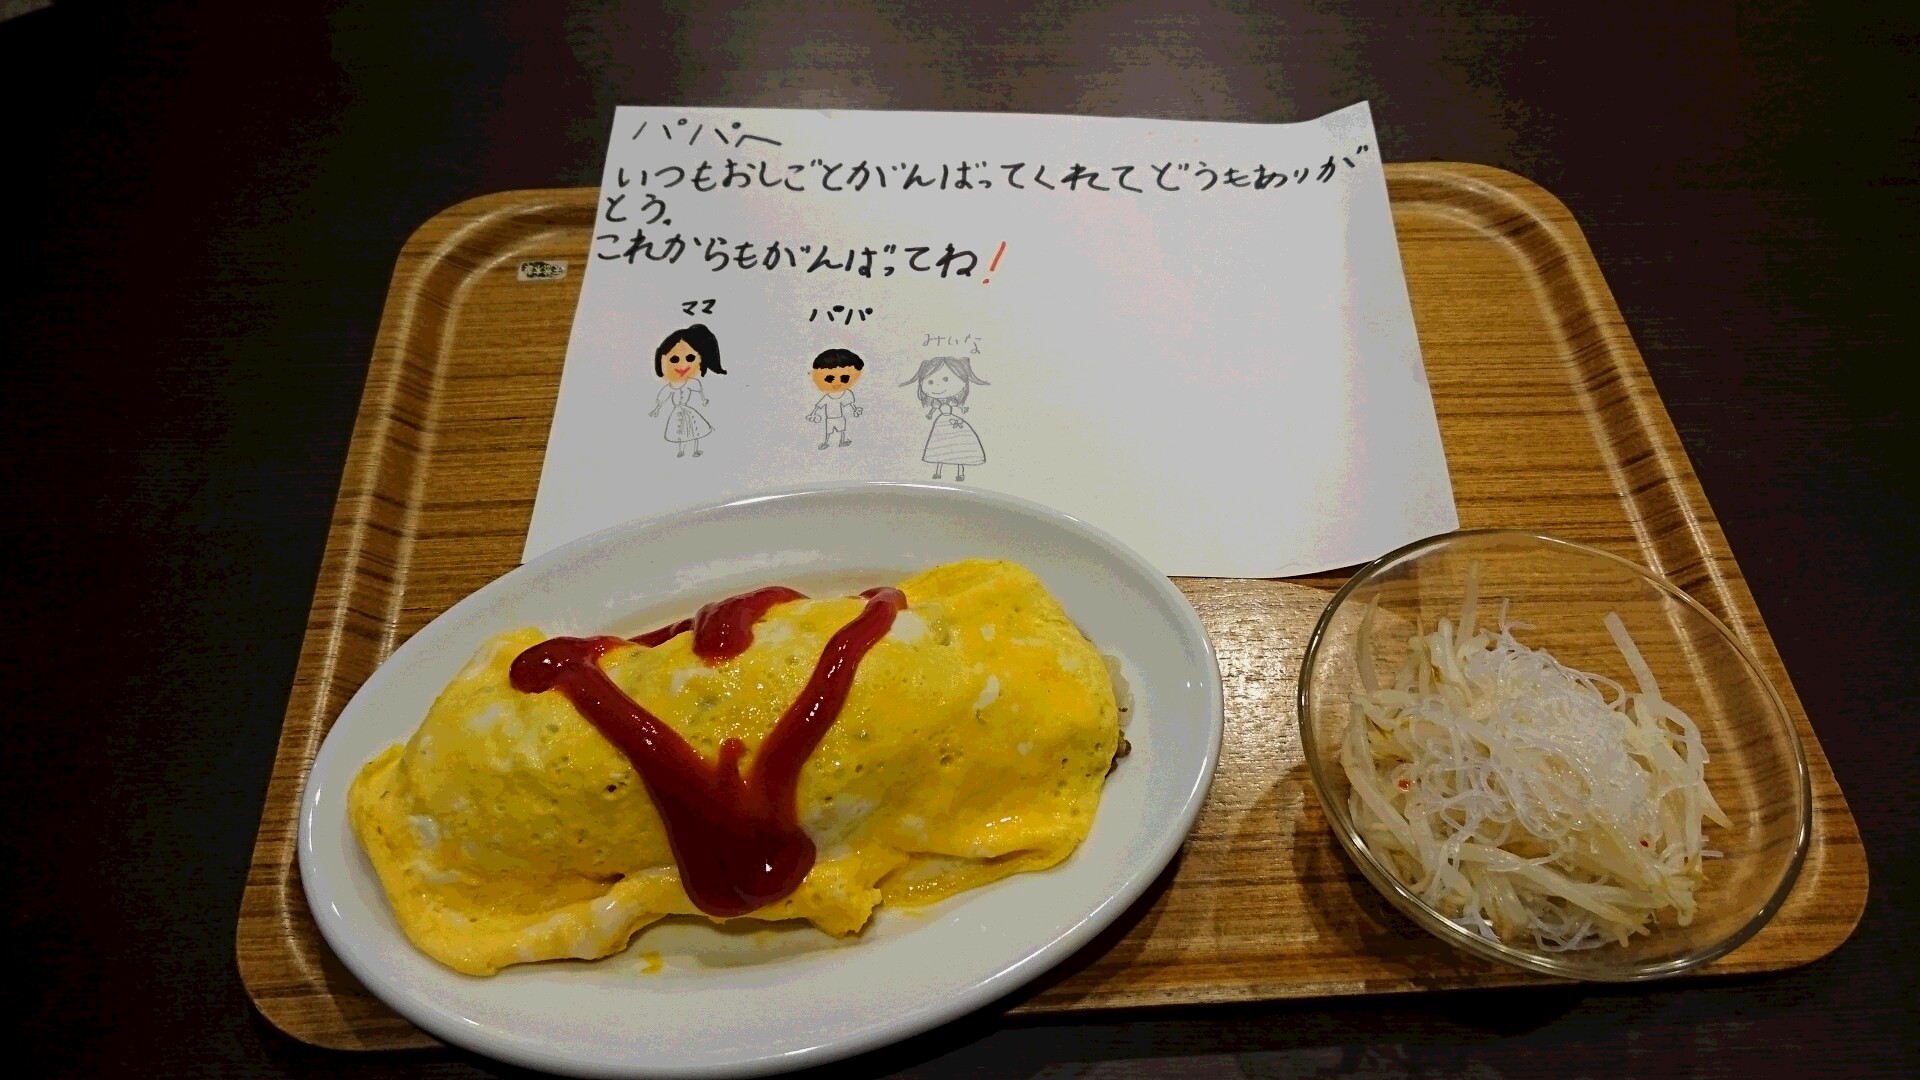 パパへ
いつもおしごとがんばってくれてどうもありが
とう。
これからもがんばってね!
ママ
パパ
みいな